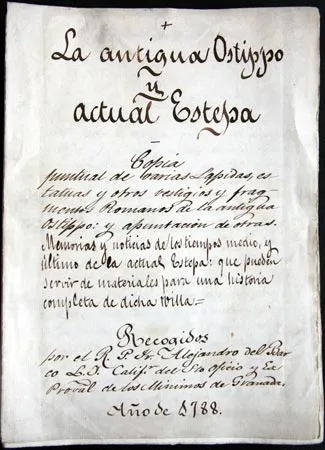 +
La antigua Ostippo
y
actual Estepa
Copia
puntual de varias Lapidas, es
tatuas y otros vestigios y frag
mentos Romanos de la antigua
Ostippo: y apuntacion de otras.
Memorias y noticias de los tiempos medio, y
ultimo de la actual Estepa: que pueden
servir de materiales para una historia
completa de dicha Villa=
Recogidos
por el R. P. Fr. Alejandro del Bar
co L. J. Calif.r del S.to Oficio y Ex
Proval de los Minimos de Granada.
Año de 1788.